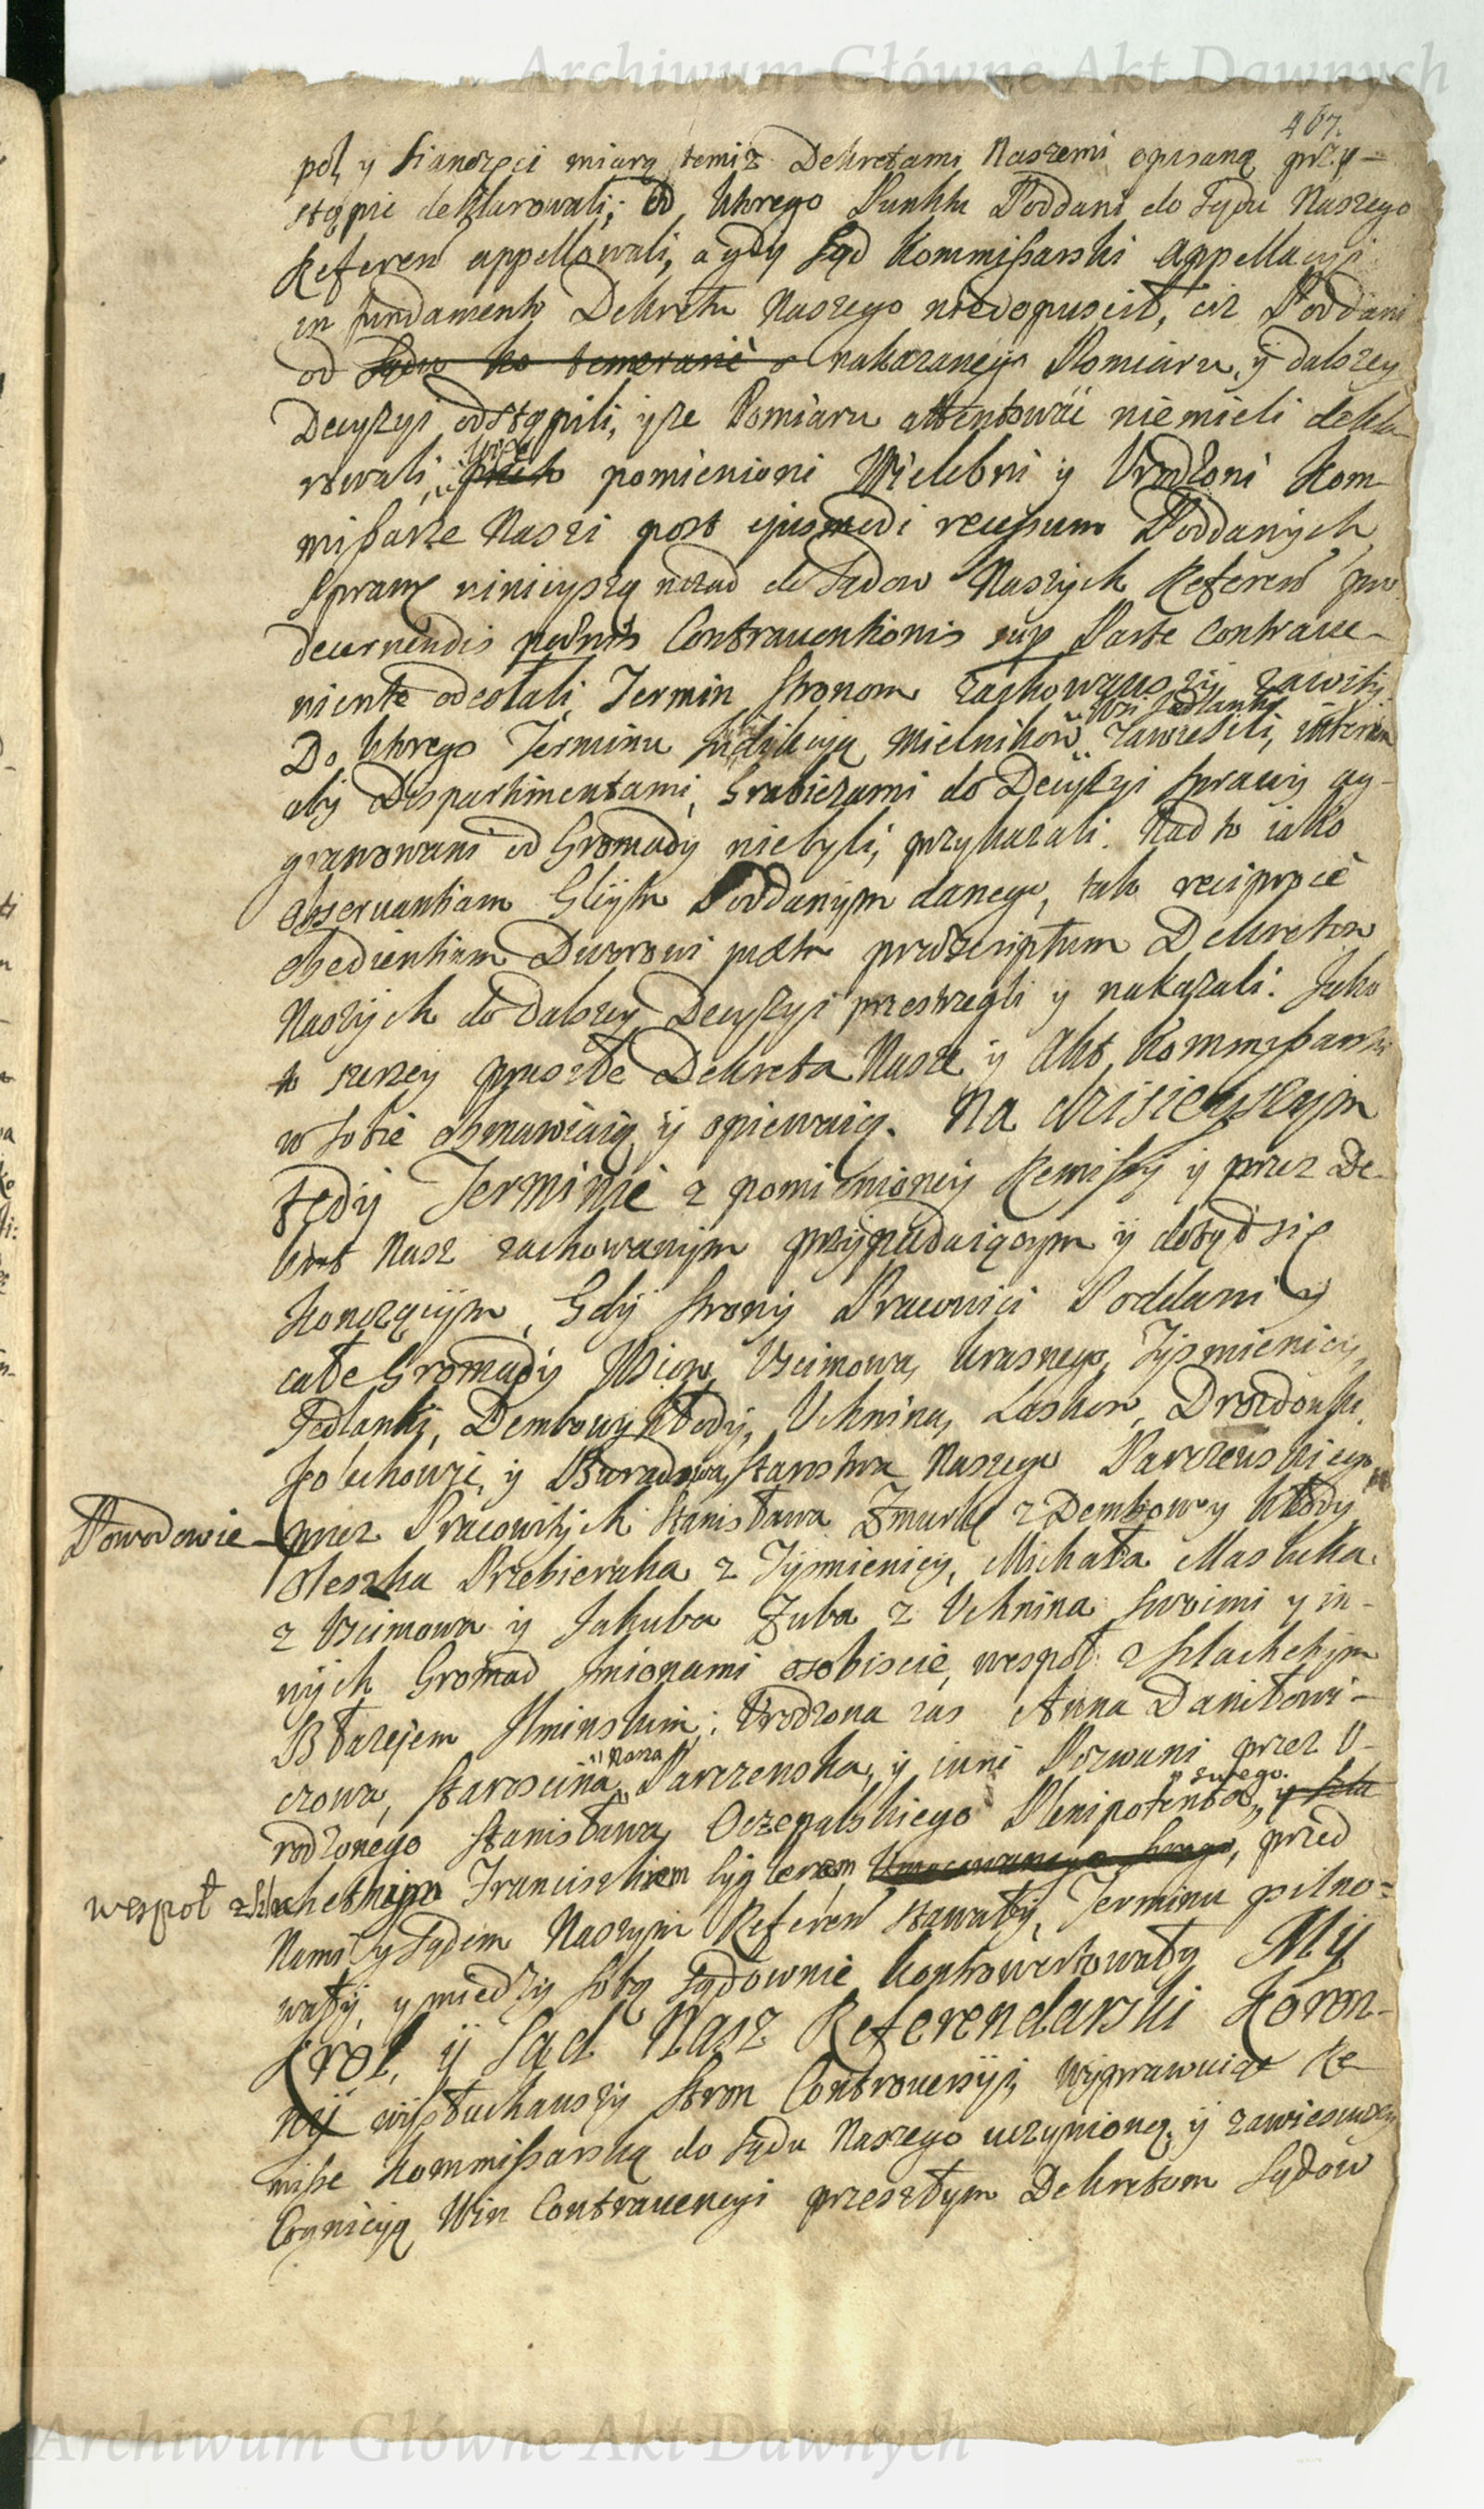 Archiwum Główne Akt Dawnych
467.
pol y sianożęci miarą temiż Dekretami Naszemi opisaną przy-
stąpić deklarowali; od ktorego Punktu Poddani do Sądu Naszego
Referen appellowali, a gdy Sąd Kommissarski appellacyi
in fundamento Dekretu Naszego niedopuscił, ciż Poddani
od nakazanego Pomiaru, y dalszey
Decyzyi odstąpili, y ze Pomiaru attentować niemieli dekla-
rowali, pomienioni Wielebni y Vrodzoni Kom-
missarze Nasi post ejusmodi recessum Poddanych,
Sprawę ninieyszą nazad do Sądow Naszych Referen pro
decernendis pænis Contraventionis sup Parte contrave-
niente odesłali, Termin stronom zachowawszy zawity.
wsi Jedlanki
Do ktorego Terminu Mielnikow zawiesili, interim
aby Dispartimentami, Grabieżami do Decyzyi sprawy ag-
grawowani od Gromady niebyli, przykazali. Nad to iako
observantiam Glejtu Poddanym danego, tak reciproce
obedientiam Dworowi juxta præscriptum Dekretow
Naszych do dalszey Decyzyi przestrzegli y nakazali. Jako
to szerzey przeszłe Dekreta Nasze y Akt Kommissarski
w sobie obmawiaią y opiewaią. Na dzisieyszym
tedy Terminie z pomienioney Remissy y przez De-
kret Nasz zachowanym przypadaiącym y dotąd się
konczącym, Gdy strony Pracowici Poddani y
całe Gromady Wsiow Vscimowa, Krasnego, Tysmienicy,
Jedlanki, Dembowy Kłody, Vchnina, Laskow, Drozdowki,
Kolechowic, y Starostwa Naszego Parczewskiego,
Powodowie przez Pracowitych Stanisława Zmurkę z Dembowy Kłody
Oleszka Przebieraka z Tysmienicy, Michała Maśluka
z Vscimowa y Jakuba Zuba z Vchnina swoimi y in-
nych Gromad Imionami osobiscie, wespoł z Szlachetnym
Błazejem Ilminskim; Vrodzona zas Anna Daniłowi-
czowa, Starościna Nasza Parczewska, y inni Pozwani przez V-
rodzonego Stanisława Oczepalskiego Plenipotenta swego,
wespoł z Szlachetnym Franciszkiem Cyglerem, przed
Nami y Sądem Naszym Referen stawały, Terminu pilno-
wały, y miedzy sobą sądownie kontrowertowały My
Krol, y Sąd Nasz Referendarski Koron-
ny wysłuchawszy stron Controversyi, wyprawuiąc Re-
misse Kommissarską do Sądu Naszego uczynioną, y zawiesiwszy
Cognicyą Win Contravencyi przeszłym Dekretom Sądow
Archiwum Główne Akt Dawnych